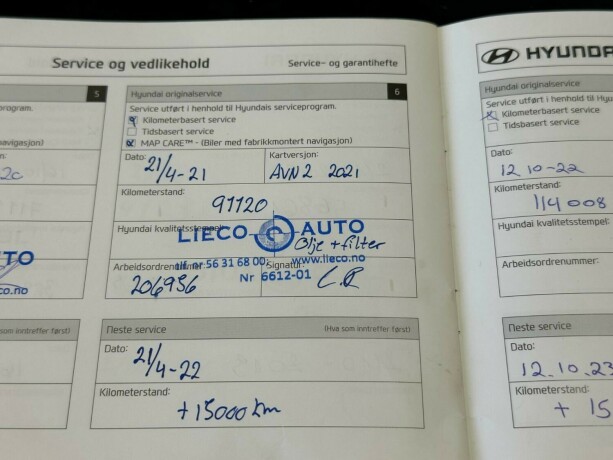 Service og vedlikehold
Service- og garantihefte
5
rogram.
navigasjon)
2c
TO
co.no
som inntreffer først)
Hyundai originalservice 6
Service utført i henhold til Hyundais serviceprogram.
Kilometerbasert service
Tidsbasert service
MAP CARE™ - (Biler med fabrikkmontert navigasjon)
Dato: 21/4-21
Kartversjon: AVN2 2021
Kilometerstand:
91120
Hyundai kvalitetsstempel:
LIECO AUTO
Olje + filter
tlf. nr 56 31 68 00 www.lieco.no
Nr 6612-01
Arbeidsordrenummer: Signatur:
206956
Neste service (Hva som inntreffer først)
Dato: 21/4-22
Kilometerstand:
+15000 km
HYUNDA
Hyundai originalservice
Service utført i henhold til Hyund
Kilometerbasert service
Tidsbasert service
Dato:
12 10-22
Kilometerstand:
114 008
Hyundai kvalitetsstempel:
Arbeidsordrenummer:
Neste service
Dato:
12.10.23
Kilometerstand:
+ 15